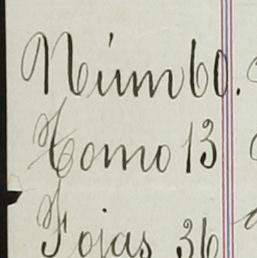 Núm 60.
Tomo 13
Fojas 36